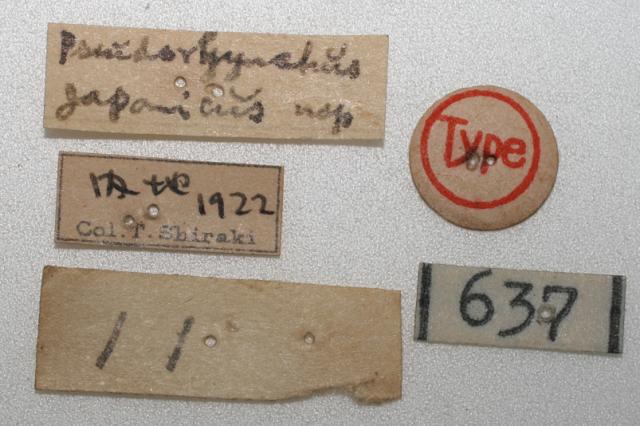 Pseudorhynchus
japonicus nsp
Type
内地 1922
Col. T. Shiraki
637
11